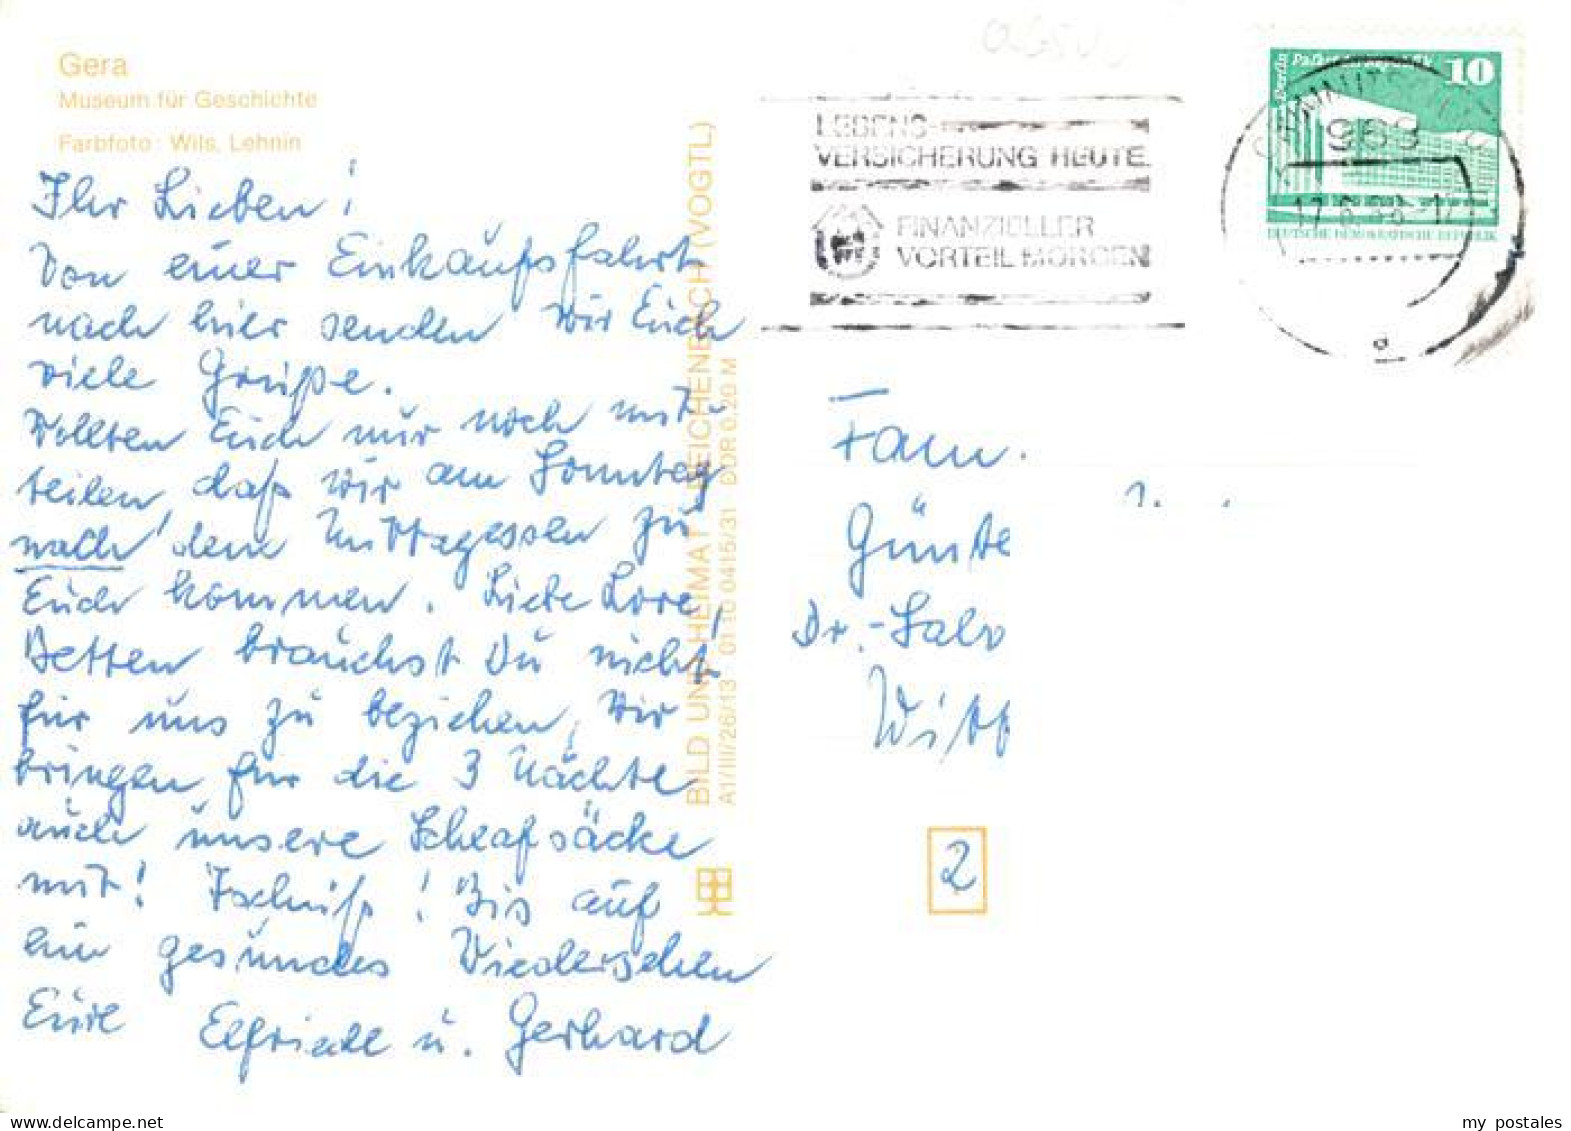 Gera
Museum für Geschichte
Farbfoto: Wils, Lehnin
Ihr Lieben!
Von einer Einkaufsfahrt
nach hier senden wir Euch
viele Grüße.
Wollten Euch nur noch mit-
teilen, daß wir am Sonntag
nach dem Mittagessen zu
Euch kommen. Liebe Lore,
Betten brauchst Du nicht
für uns zu beziehen, wir
bringen für die 3 Nächte
auch unsere Schlafsäcke
mit! Tschüß! Bis auf
ein gesundes Wiedersehen
Eure Elfriede u. Gerhard
BILD UND HEIMAT REICHENBACH (VOGTL)
A1/III/26/13 01 10 0415/31 DDR 0,20 M
LEBENS-
VERSICHERUNG HEUTE
FINANZIELLER
VORTEIL MORGEN
Berlin Palast der Republik 10
DEUTSCHE DEMOKRATISCHE REPUBLIK
963
Fam.
Günte
Dr.-Salv
Witt
2
my postales